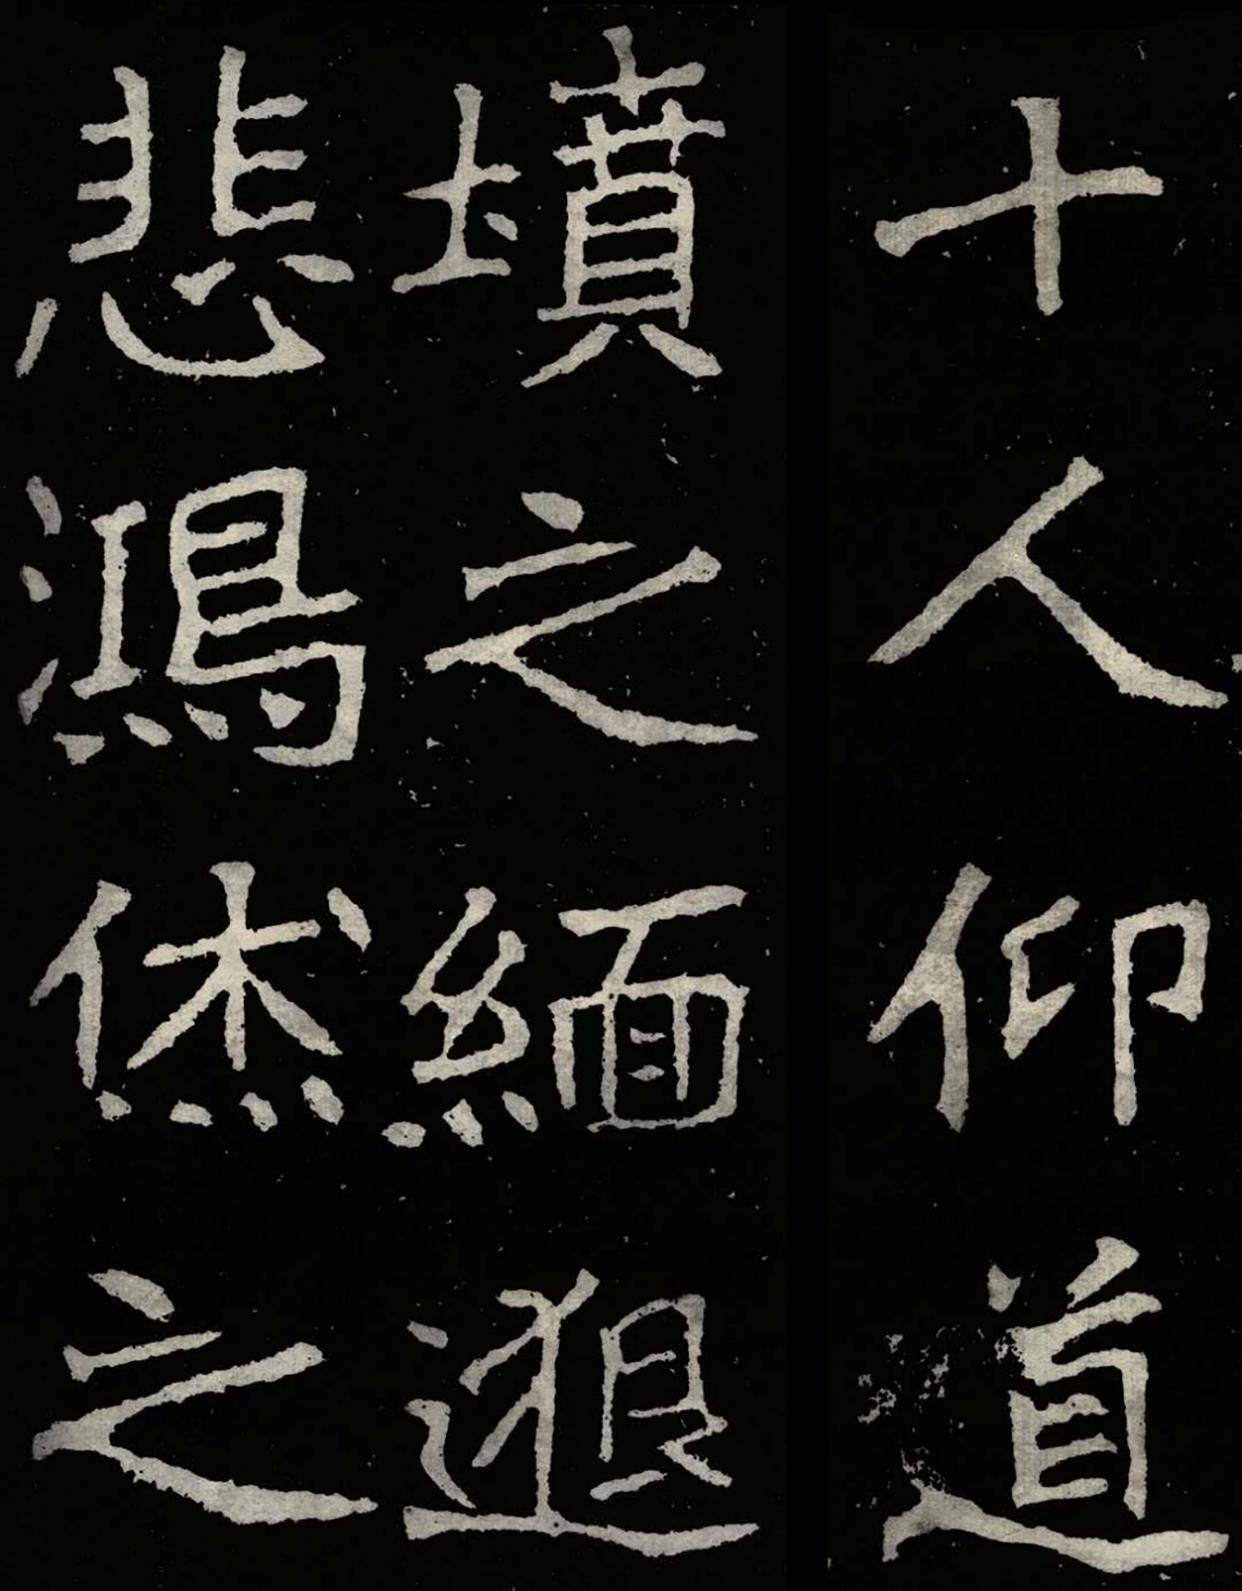 十人仰道
墳之緬邈
悲鴻烋之